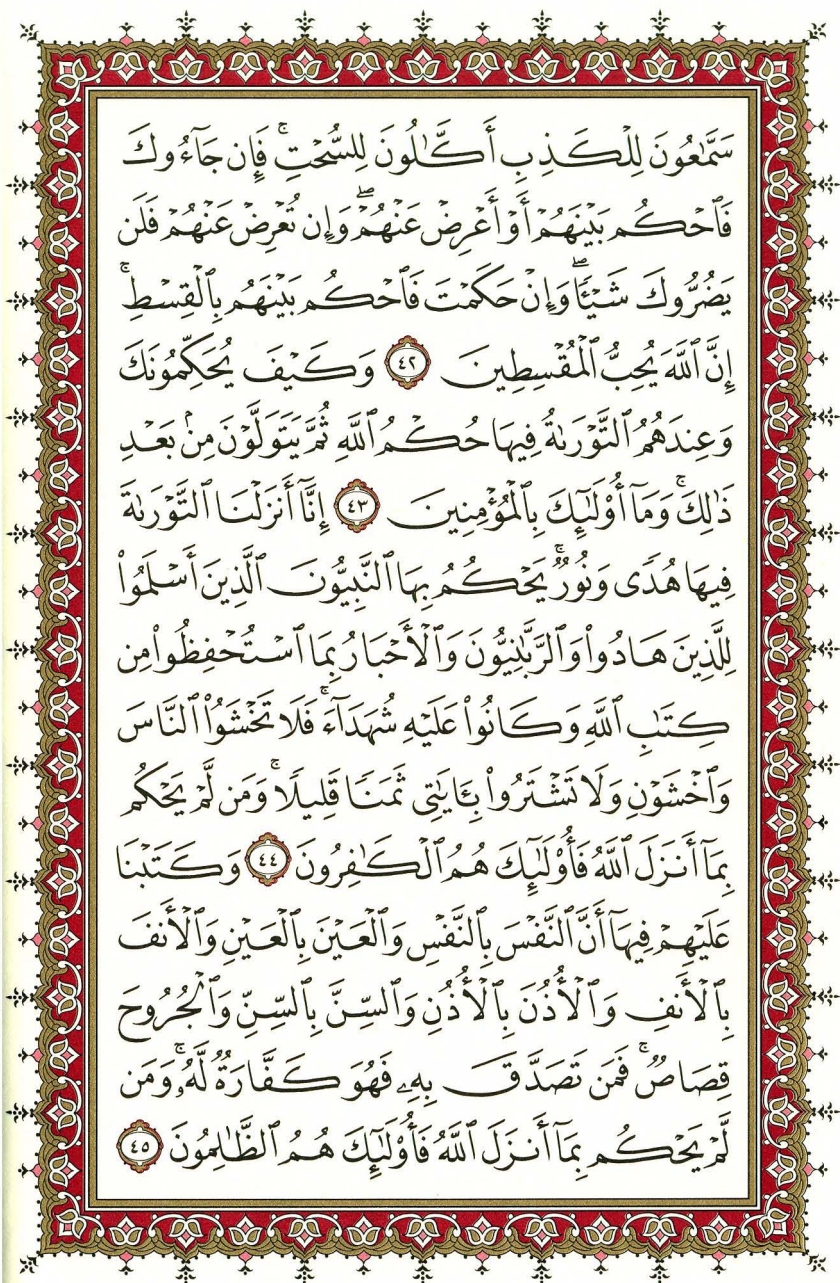 سَمَّٰعُونَ لِلۡكَذِبِ أَكَّٰلُونَ لِلسُّحۡتِۚ فَإِن جَآءُوكَ
فَٱحۡكُم بَيۡنَهُمۡ أَوۡ أَعۡرِضۡ عَنۡهُمۡۖ وَإِن تُعۡرِضۡ عَنۡهُمۡ فَلَن
يَضُرُّوكَ شَيۡـٔٗاۖ وَإِنۡ حَكَمۡتَ فَٱحۡكُم بَيۡنَهُم بِٱلۡقِسۡطِۚ
إِنَّ ٱللَّهَ يُحِبُّ ٱلۡمُقۡسِطِينَ ٤٢ وَكَيۡفَ يُحَكِّمُونَكَ
وَعِندَهُمُ ٱلتَّوۡرَىٰةُ فِيهَا حُكۡمُ ٱللَّهِ ثُمَّ يَتَوَلَّوۡنَ مِنۢ بَعۡدِ
ذَٰلِكَۚ وَمَآ أُوْلَٰٓئِكَ بِٱلۡمُؤۡمِنِينَ ٤٣ إِنَّآ أَنزَلۡنَا ٱلتَّوۡرَىٰةَ
فِيهَا هُدٗى وَنُورٞۚ يَحۡكُمُ بِهَا ٱلنَّبِيُّونَ ٱلَّذِينَ أَسۡلَمُواْ
لِلَّذِينَ هَادُواْ وَٱلرَّبَّٰنِيُّونَ وَٱلۡأَحۡبَارُ بِمَا ٱسۡتُحۡفِظُواْ مِن
كِتَٰبِ ٱللَّهِ وَكَانُواْ عَلَيۡهِ شُهَدَآءَۚ فَلَا تَخۡشَوُاْ ٱلنَّاسَ
وَٱخۡشَوۡنِ وَلَا تَشۡتَرُواْ بِـَٔايَٰتِي ثَمَنٗا قَلِيلٗاۚ وَمَن لَّمۡ يَحۡكُم
بِمَآ أَنزَلَ ٱللَّهُ فَأُوْلَٰٓئِكَ هُمُ ٱلۡكَٰفِرُونَ ٤٤ وَكَتَبۡنَا
عَلَيۡهِمۡ فِيهَآ أَنَّ ٱلنَّفۡسَ بِٱلنَّفۡسِ وَٱلۡعَيۡنَ بِٱلۡعَيۡنِ وَٱلۡأَنفَ
بِٱلۡأَنفِ وَٱلۡأُذُنَ بِٱلۡأُذُنِ وَٱلسِّنَّ بِٱلسِّنِّ وَٱلۡجُرُوحَ
قِصَاصٞۚ فَمَن تَصَدَّقَ بِهِۦ فَهُوَ كَفَّارَةٞ لَّهُۥۚ وَمَن
لَّمۡ يَحۡكُم بِمَآ أَنزَلَ ٱللَّهُ فَأُوْلَٰٓئِكَ هُمُ ٱلظَّٰلِمُونَ ٤٥